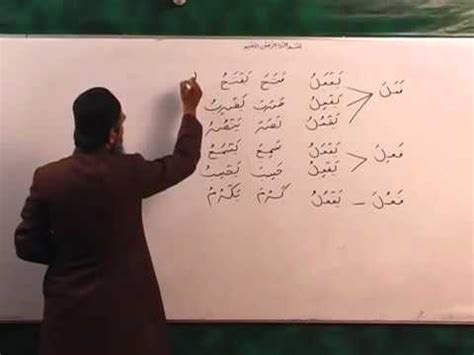 بسم الله الرحمن الرحيم
فَعَلَ يَفعَلُ فَتَحَ يَفتَحُ
يَفعِلُ ضَرَبَ يَضرِبُ
يَفعُلُ نَصَرَ يَنصُرُ
فَعِلَ يَفعَلُ سَمِعَ يَسمَعُ
يَفعِلُ حَسِبَ يَحسِبُ
فَعُلَ – يَفعُلُ كَرُمَ يَكرُمُ